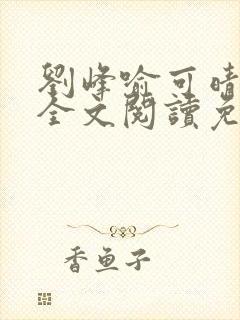 劉峰喻可晴
全文閱讀免
香魚子